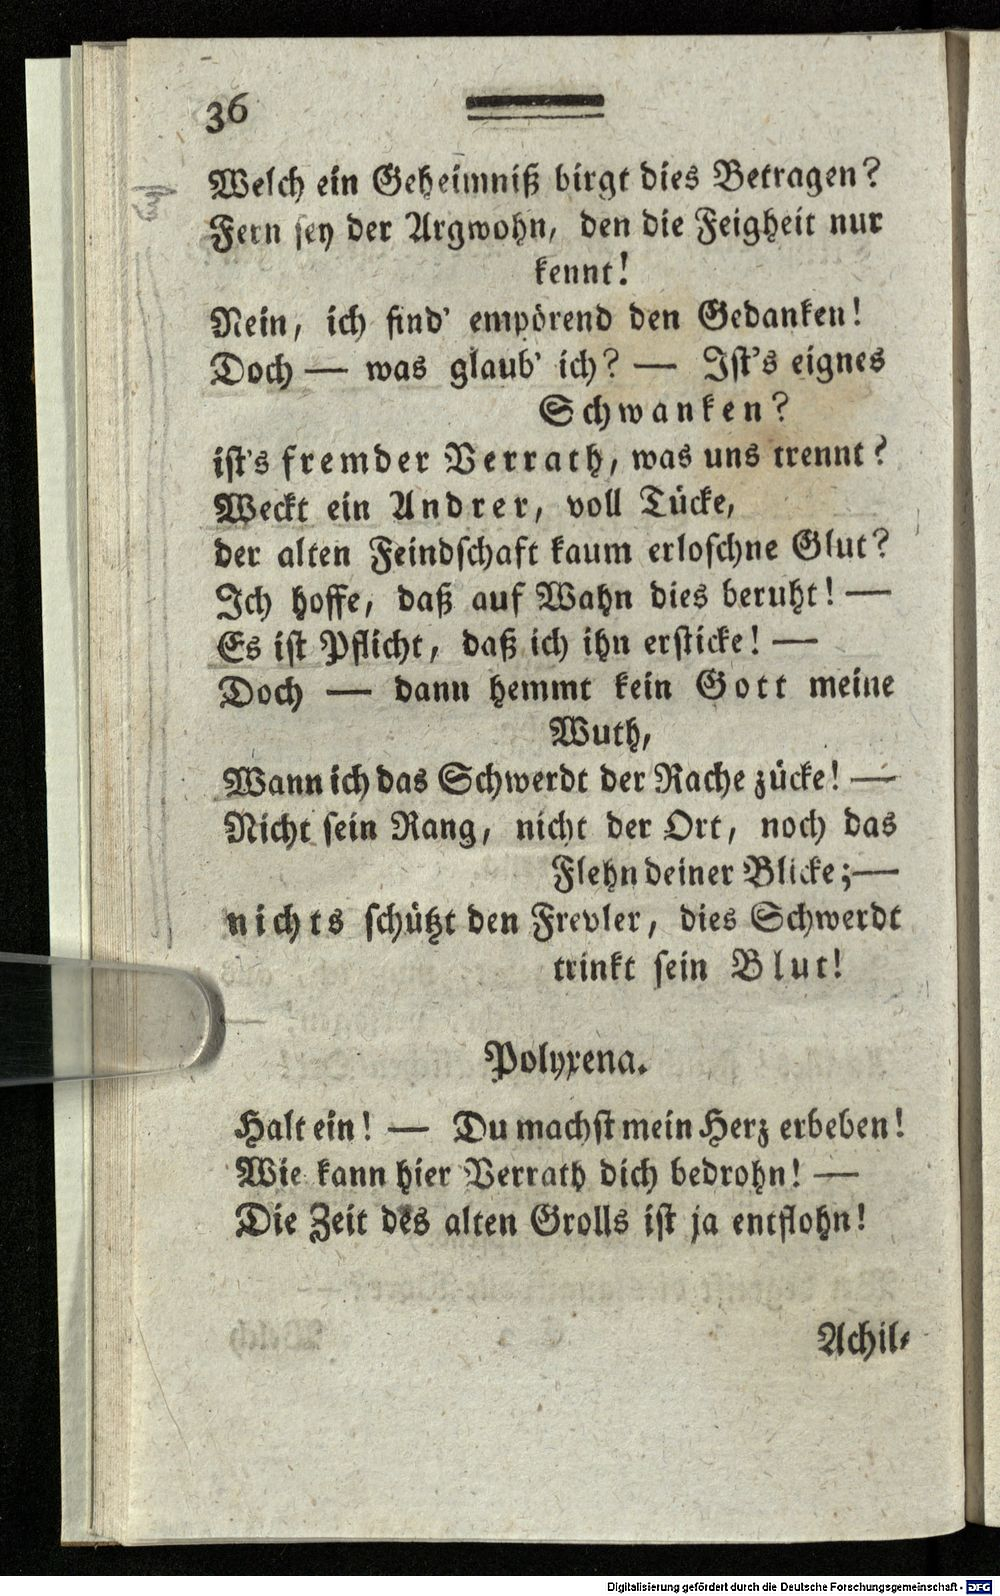 36
Welch ein Geheimniß birgt dies Betragen?
Fern sey der Argwohn, den die Feigheit nur
kennt!
Nein, ich find' empörend den Gedanken!
Doch — was glaub' ich? — Ist's eignes
Schwanken?
ist's fremder Verrath, was uns trennt?
Weckt ein Andrer, voll Tücke,
der alten Feindschaft kaum erloschne Glut?
Ich hoffe, daß auf Wahn dies beruht! —
Es ist Pflicht, daß ich ihn ersticke! —
Doch — dann hemmt kein Gott meine
Wuth,
Wann ich das Schwerdt der Rache zücke! —
Nicht sein Rang, nicht der Ort, noch das
Flehn deiner Blicke; —
nichts schützt den Frevler, dies Schwerdt
trinkt sein Blut!
Polyxena.
Halt ein! — Du machst mein Herz erbeben!
Wie kann hier Verrath dich bedrohn! —
Die Zeit des alten Grolls ist ja entflohn!
Achil-
Digitalisierung gefördert durch die Deutsche Forschungsgemeinschaft - DFG